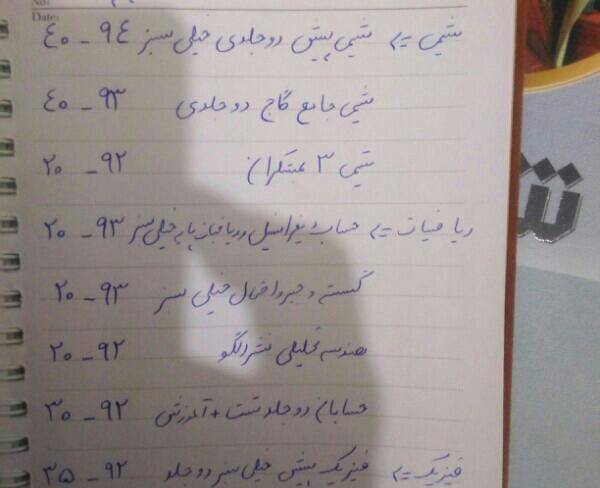 No:
Date:
شیمی => شیمی پیش دو جلدی خیلی سبز ۹۴ - ۴۰
شیمی جامع گاج دو جلدی ۹۳ - ۴۰
شیمی ۳ مبتکران ۹۲ - ۲۰
ریاضیات => حساب دیفرانسیل و ریاضیات پایه خیلی سبز ۹۳ - ۲۰
گسسته و جبر و احتمال خیلی سبز ۹۳ - ۲۰
هندسه تحلیلی نشر الگو ۹۲ - ۲۰
حسابان دو جلد تست + آموزش ۹۲ - ۳۰
فیزیک => فیزیک پیش خیلی سبز دو جلد ۹۲ - ۳۵